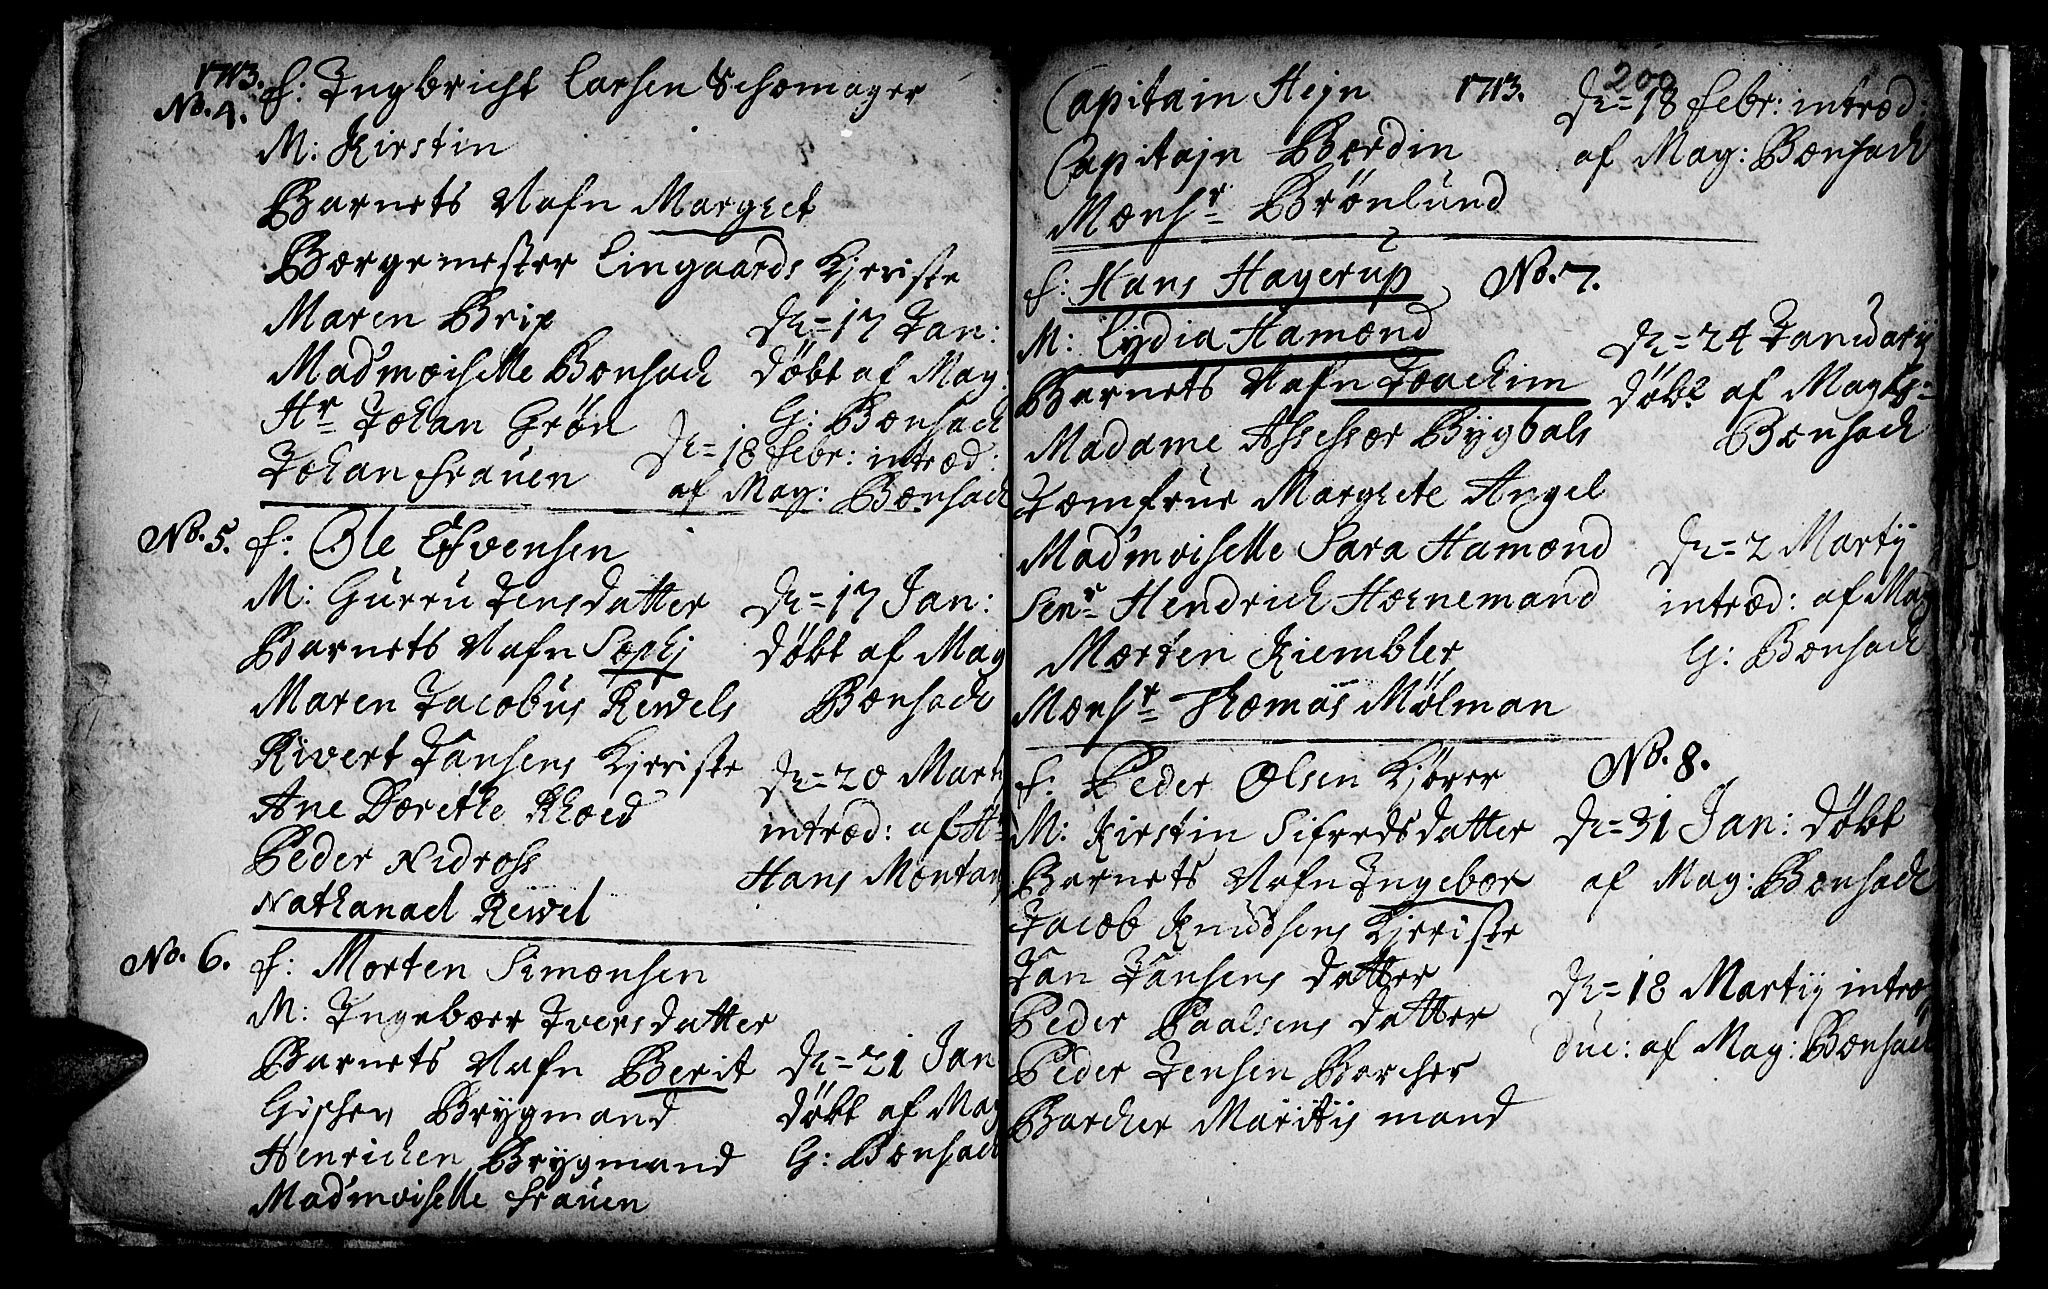 1713.
No. 4. f: Ingbricht Larsen Schomager
M: Kirstin
Barnets Nafn Margret
Borgemester Lingaards Kjeriste
Maren Brix
Mad'moiselle Bonsach
Hr Johan Grøn
Johan Frauen
D= 17 Jan:
døbt af Mag:
G: Bonsach
D= 18 febr: introd:
af Mag: Bonsach
No. 5. f: Ole Esvensen
M: Gurru Jensdatter
Barnets Nafn Sophj
Maren Jacobus Rewels
Sivert Jansens Kjeriste
Ane Dorethe Rhoed
Peder Nidross
Nathanael Rewel
D= 17 Jan:
døbt af Mag
Bonsach
D= 20 Marti
introd: af Hr
Hans Montan
No. 6. f: Morten Simonsen
M: Ingeboer Iversdatter
Barnets Nafn Berit
Gisken Brygmand
Henrichen Brygmand
Mad'moiselle Frauen
D= 21 Jan
døbt af Mag
G: Bonsach
200
Capitain Hejn 1713.
Capitajn Bordin
Monsr Brønlund
D= 18 febr: introd:
af Mag: Bonsach
f: Hans Hagerup No. 7.
M: Lydia Hamond
Barnets Nafn Joachim
Madame Assessor Bygbals
Jomfrue Margrete Angel
Mad'moiselle Sara Hamond
Senr Hendrich Hornemand
Morten Kiembler
Monsr Thomas Mølman
D= 24 Januarij
døbt af Mag G=
Bonsach
D= 2 Martij
introd: af Mag
G: Bonsach
No. 8.
f: Peder Olsen Kjører
M: Kirstin Sifredsdatter
Barnets Nafn Ingebor
Jacob Knudsens Kjeriste
Jan Jansens datter
Peder Paalsens datter
Peder Jensen Borcher
Barcher Maritis mand
D= 31 Jan: døbt
af Mag: Bonsach
D= 18 Martij intro
duc: af Mag: Bonsach